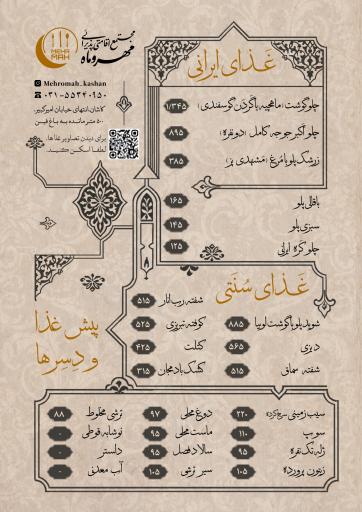 مجتمع اقامتی پذیرایی
مهر و ماه
MEHR
MAH
Mehromah_kashan
۰۳۱-۵۵۳۴۰۹۵۰
کاشان.انتهای خیابان امیرکبیر.
۵۰۰ متر مانده به باغ فین
برای دیدن تصاویر غذاها،
لطفا اسکن کنید.
غذای ایرانی
چلوگوشت (ماهیچه یا گردن گوسفندی) ۱/۳۴۵
چلو اکبر جوجه کامل (دو نفره) ۸۹۵
زرشک پلو با مرغ (مشهدی پز) ۳۸۵
باقالی پلو ۱۶۵
سبزی پلو ۱۴۵
چلو کره ایرانی ۱۲۵
غذای سنتی
شوید پلو با گوشت لوبیا ۸۸۵
دیزی ۵۶۵
شفته سماق ۵۱۵
شفته رب انار ۵۱۵
کوفته تبریزی ۵۲۵
کتلت ۴۲۵
کشک بادمجان ۳۱۵
پیش غذا
و دسرها
سیب زمینی سرخ کرده ۲۲۰
سوپ ۱۱۰
ژله تک نفره ۹۵
زیتون پرورده ۱۰۵
دوغ محلی ۹۷
ماست محلی ۹۵
سالاد فصل ۹۵
سیر ترشی ۱۰۵
ترشی مخلوط ۸۸
نوشابه قوطی -
دلستر -
آب معدنی -